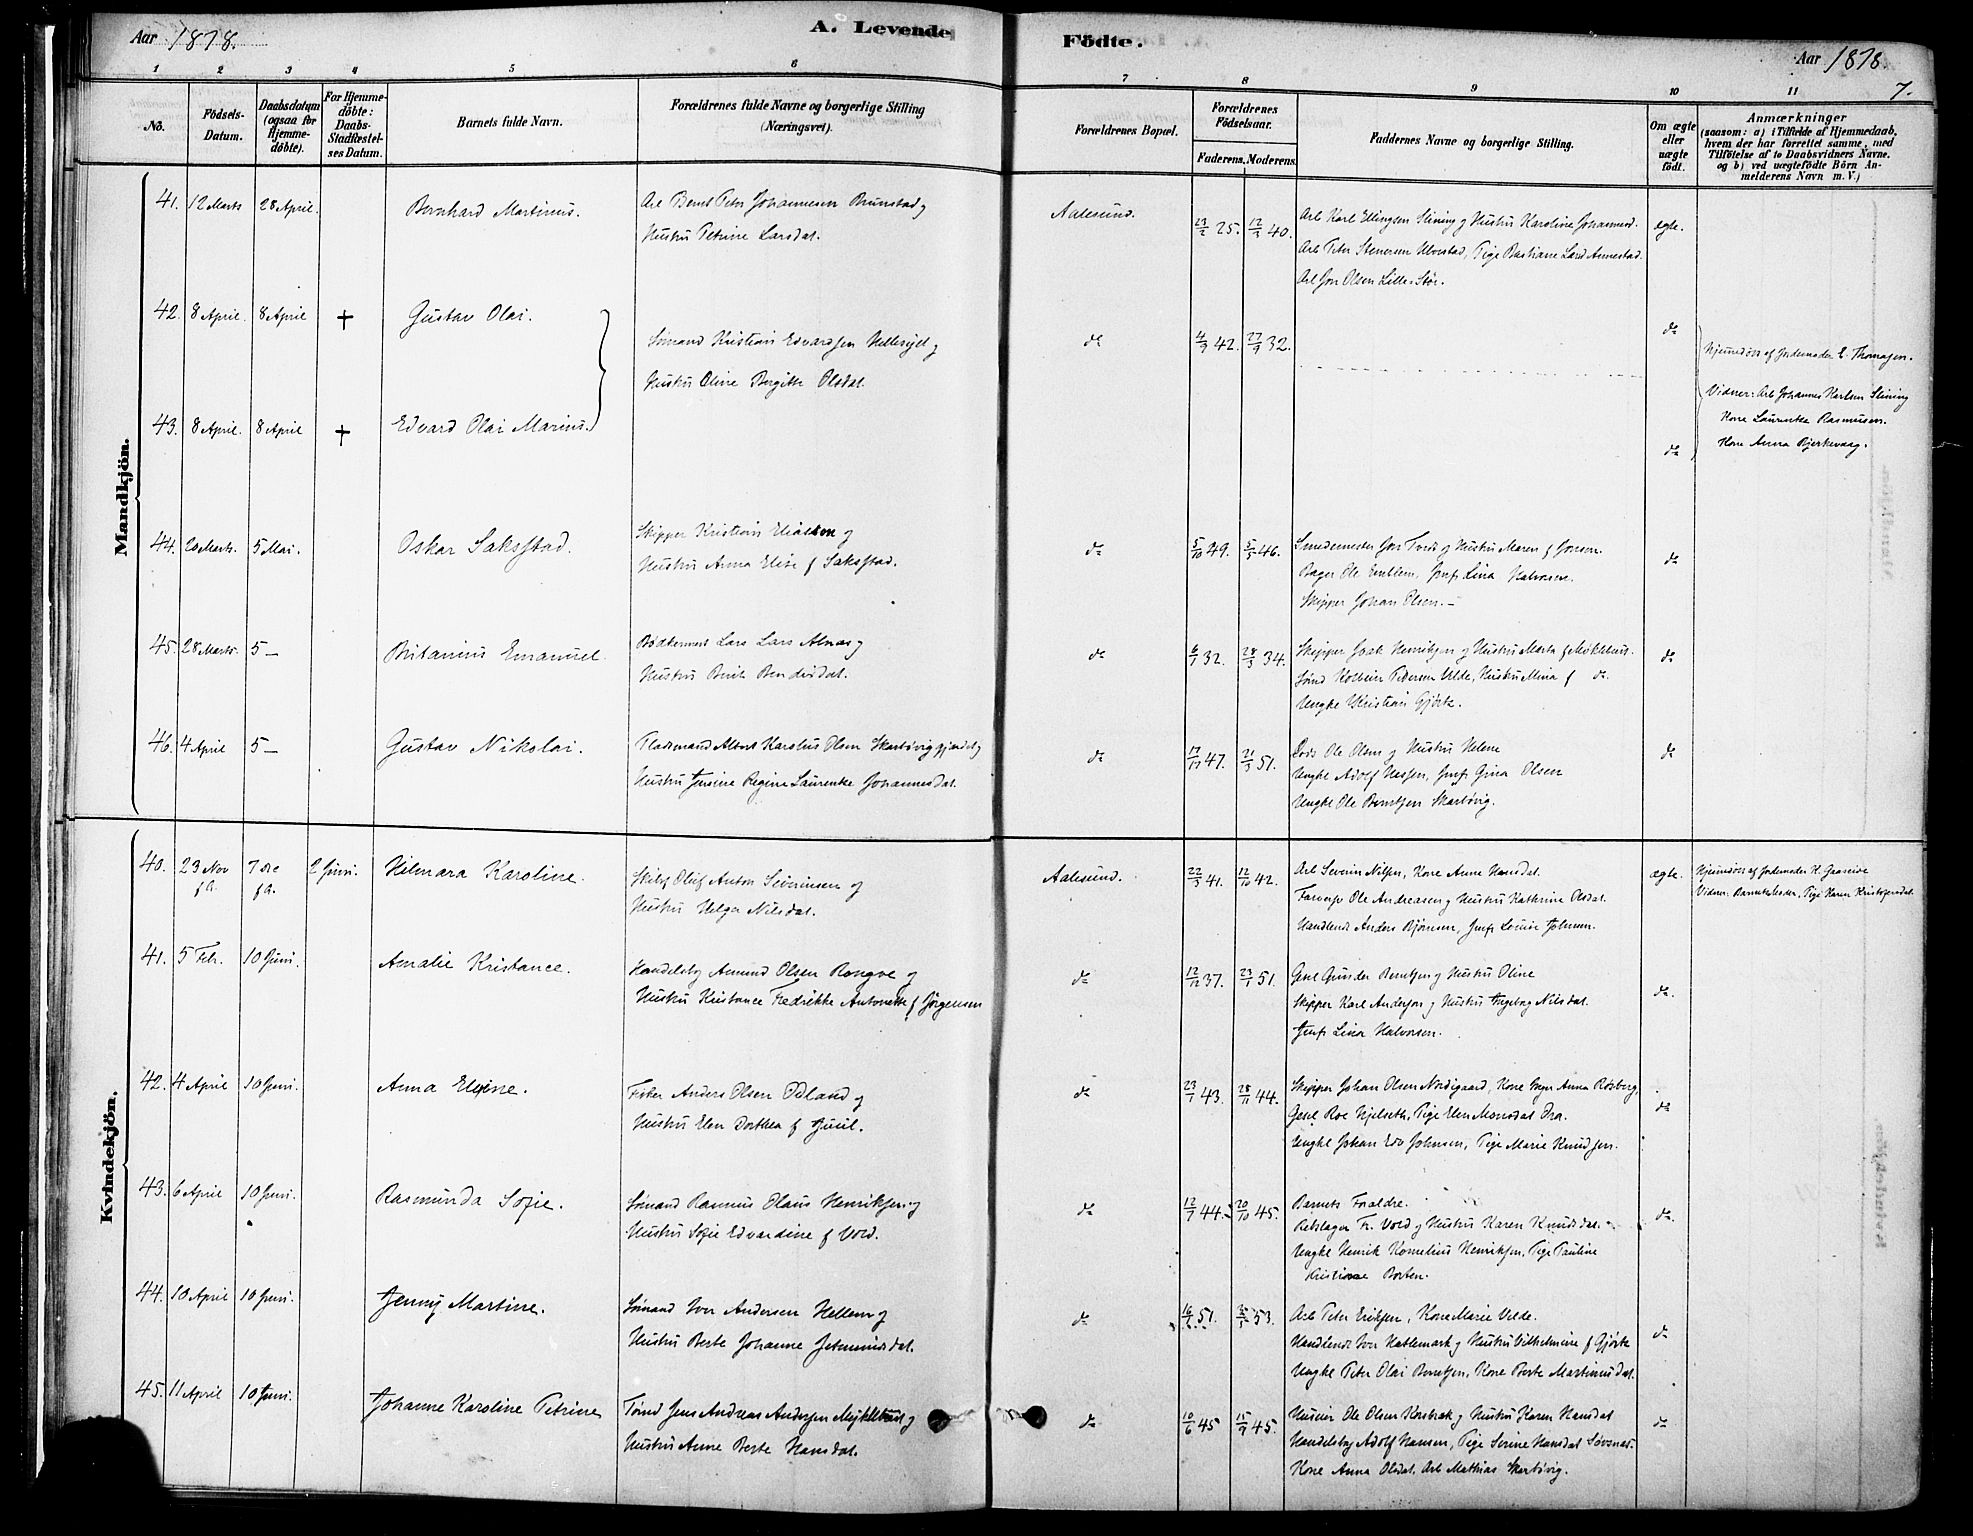 Aar 1878.
A. Levende
Födte.
Aar 1878.
7.
1 2 3 4 5 6 7 8 9 10 11
No.
Födsels-Datum.
Daabsdatum (ogsaa for Hjemme-döbte).
For Hjemme-döbte: Daabs-Stadfæstel-ses Datum.
Barnets fulde Navn.
Forældrenes fulde Navne og borgerlige Stilling (Næringsvei).
Forældrenes Bopæl.
Forældrenes Födselsaar.
Faderens. Moderens.
Faddernes Navne og borgerlige Stilling.
Om ægte eller uægte födt.
Anmærkninger
(saasom: a) i Tilfælde af Hjemmedaab, hvem der har forrettet samme, med Tilföielse af to Daabsvidners Navne, og b) ved uægtefödte Börn An-melderens Navn m. V.)
Mandkjön.
41. 12 Marts 28 April. Bernhard Martinus.
Arb Bernt Peter Johannesen Brunstad og
Hustru Petrine Larsdat.
Aalesund. 25. 12/3 40.
Arb Karl Ellingsen Slining og Hustru Karoline Johannesd.
Arb Peter Stenersen Ulvestad, Pige Bastiane Larsd Annestad.
Arb Jon Olsen Lille-Stör.
ægte.
42. 8 April. 8 April + Gustav Olai.
Sömand Kristian Edvardsen Hellesylt og
Hustru Oline Bergitte Olsdat.
do 4/9 42. 27/9 32. do
Hjemmedöbt af Jordemoder E. Thomasen.
Vidner: Arb Johannes Karlsen Slining
Kone Laurentse Rasmussen.
Kone Anna Bjerkevaag.
43. 8 April. 8 April + Edvard Olai Marius. do
44. 20 Marts. 5 Mai. Oskar Saksstad.
Skipper Kristian Eliassen og
Hustru Anna Elise f Saksstad.
do 5/10 49. 5/5 46.
Smedemester Jon Tvedt og Hustru Maren f Jonsen.
Bager Ole Emblem, Jmfr Lina Halvorsen.
Skipper Johan Olsen.
do
45. 28 Marts. 5 — Britanius Emanuel.
Bödkermest Lars Lars Alnæs og
Hustru Berit Bendiksdat.
do 6/1 32. 28/3 34.
Skipper Isak Henriksen og Hustru Marta f Möklebust.
Sömd Kolbein Pedersen Velde, Hustru Mina f do.
Ungke Kristian Gjörtz.
do
46. 4 April 5 — Gustav Nikolai.
Pladsmand Albert Karolus Olsen Skarbövig gjerdet og
Hustru Jensine Regine Laurentse Johannesdat.
do 47. 21/3 51.
Lods Ole Olsen og Hustru Helene
Ungke Adolf Nessen, Jmfr Gina Olsen
Ungke Ole Berntsen Skarbövig.
do
Kvindekjön.
40. 23 Nov f A. 7 De f A. 2 Juni. Hilmara Karoline.
Skibsf Oluf Anton Severinsen og
Hustru Helga Nilsdat.
Aalesund. 22/3 41. 12/10 42.
Arb Severin Nilsen, Kone Anne Hansdat.
Farverfor Ole Andreasen og Hustru Kathrine Olsdat.
Handlende Anders Björnsen, Jmfr Louise Johnsen.
ægte.
Hjemmedöbt af Jordemoder K. Gaaseide
Vidner: Barnets Fader, Pige Karen Kristofersdat.
41. 5 Febr. 10 Juni. Amalie Kristance.
Handelsbg Amund Olsen Rongve og
Hustru Kristance Fredrikke Antonette f Jörgensen
do 12/12 37. 23/1 51.
Gesel Gunder Berntsen og Hustru Oline
Skipper Karl Andersen og Hustru Ingeborg Nilsdat.
Jmfr Lina Halvorsen.
do.
42. 4 April 10 Juni. Anna Elesine.
Fisker Anders Olsen Ödland og
Hustru Elen Dorthea f Juul.
do 23/1 43. 28/11 44.
Skipper Johan Olsen Nordigaard, Kone Inger Anna Rösberg,
Gesel Roe Hjelseth, Pige Elen Monsdat Dra.
Ungke Johan Edv Johnsen, Pige Marie Knudsen.
do
43. 6 April 10 Juni. Rasmunda Sofie.
Sömand Rasmus Olaus Henriksen og
Hustru Sofie Edvardine f Vold.
do 12/7 44. 20/10 45.
Barnets Forældre.
Rebslager Fr. Vold og Hustru Karen Knudsdat.
Ungke Henrik Kornelius Henriksen, Pige Pauline
Kristiane Borten.
do.
44. 10 April 10 Juni. Jenny Martine.
Sömand Iver Andersen Hellem og
Hustru Berte Johanne Jetmundsdat.
do 51. 53.
Arb Peter Eriksen, Kone Marie Velde.
Handlende Iver Hattemark og Hustru Vilhelmine f Gjörtz
Ungke Peter Olai Berntsen, Kone Berte Martinusdat.
do
45. 11 April 10 Juni. Johanne Karoline Petrine
Tömd Jens Andreas Andersen Myklebust og
Hustru Anne Berte Hansdat.
do 10/6 45 15/9 45.
Huseier Ole Olsen Korsbrek og Hustru Karen Hansdat
Handelsbg Adolf Hansen, Pige Serine Hansdat Sövsnæs.
Kone Anna Olsdat, Arb Mathias Skarbövig.
do